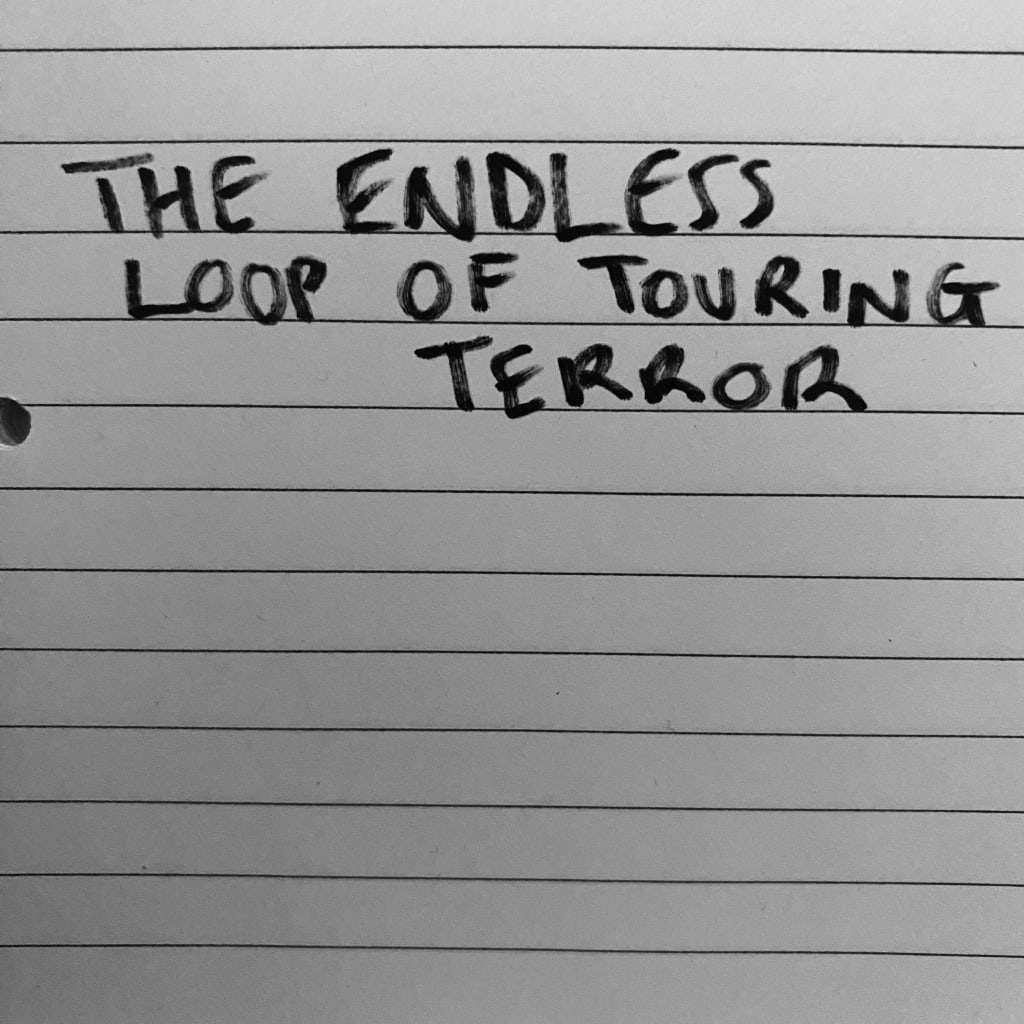 THE ENDLESS
LOOP OF TOURING
TERROR